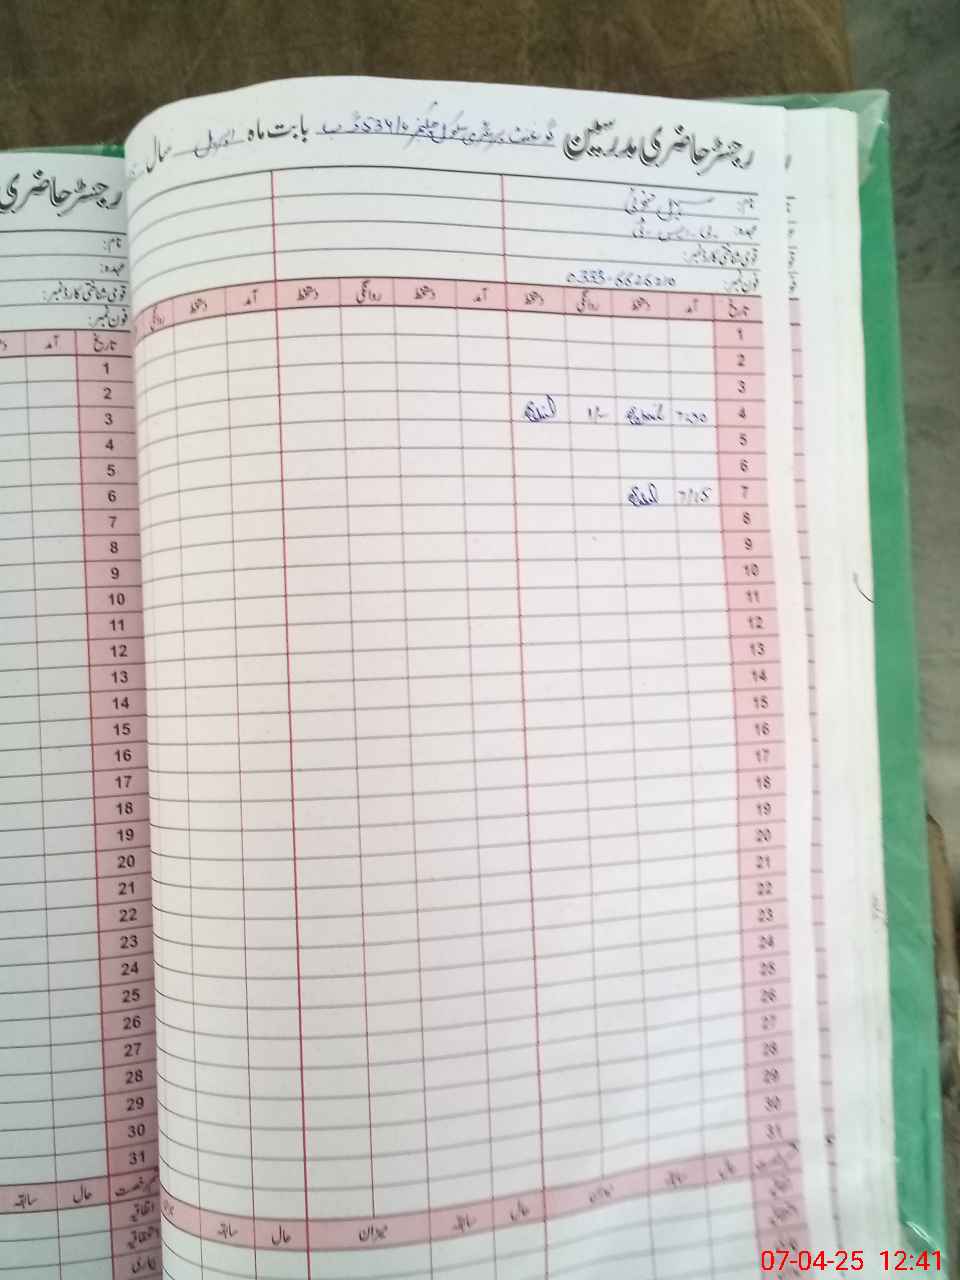 رجسٹر حاضری مدرسین گورنمنٹ پرائمری سکول چکنمبر 534/ گ ب بابت ماہ اپریل سال
نام:
عہدہ: پی۔ایس۔ٹی
قومی شناختی کارڈ نمبر:
فون نمبر: 0333-6626210
تاریخ آمد دستخط روانگی دستخط آمد دستخط روانگی دستخط آمد دستخط روانگی
1
2
3
4 7:30
5
6
7 7:15
8
9
10
11
12
13
14
15
16
17
18
19
20
21
22
23
24
25
26
27
28
29
30
31
حال سابقہ میزان حال سابقہ میزان حال سابقہ
اتفاقیہ
رجسٹر حاضری
نام:
عہدہ:
قومی شناختی کارڈ نمبر:
فون نمبر:
تاریخ آمد
1
2
3
4
5
6
7
8
9
10
11
12
13
14
15
16
17
18
19
20
21
22
23
24
25
26
27
28
29
30
31
حال سابقہ
اتفاقیہ
07-04-25 12:41